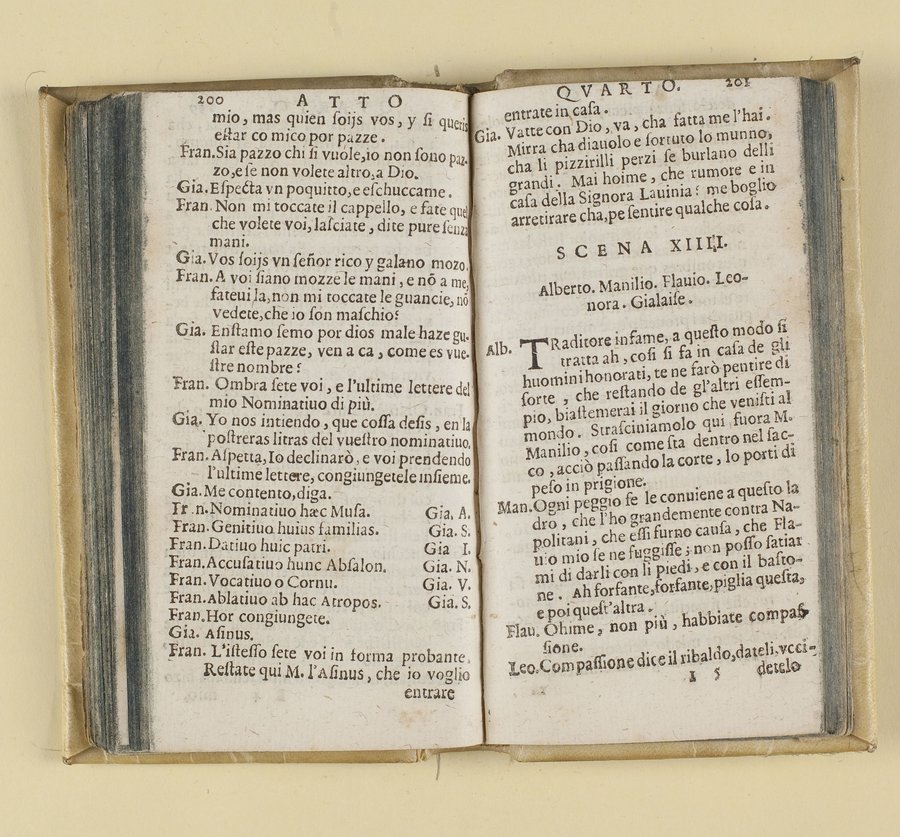 200 ATTO
mio, mas quien ſoijs vos, y ſi queris
eſtar co mico por pazze.
Fran. Sia pazzo chi ſi vuole, io non ſono paz-
zo, e ſe non volete altro, a Dio.
Gia. Eſpecta vn poquitto, e eſchuccame.
Fran. Non mi toccate il cappello, e fate quel
che volete voi, laſciate, dite pure ſenza
mani.
Gia. Vos ſoijs vn ſeñor rico y galano mozo.
Fran. A voi ſiano mozze le mani, e nõ a me,
fateui la, non mi toccate le guancie, nõ
vedete, che io ſon maſchio?
Gia. Enſtamo ſemo por dios male haze gu-
ſtar eſte pazze, ven a ca, come es vue-
ſtre nombre?
Fran. Ombra ſete voi, e l'ultime lettere del
mio Nominatiuo di più.
Gia. Yo nos intiendo, que coſſa deſis, en la
poſtreras litras del vueſtro nominatiuo.
Fran. Aſpetta, Io declinarò, e voi prendendo
l'ultime lettere, congiungetele inſieme.
Gia. Me contento, diga.
Fr n. Nominatiuo hæc Muſa. Gia. A.
Fran. Genitiuo huius familias. Gia. S.
Fran. Datiuo huic patri. Gia I.
Fran. Accuſatiuo hunc Abſalon. Gia. N.
Fran. Vocatiuo o Cornu. Gia. V.
Fran. Ablatiuo ab hac Atropos. Gia. S.
Fran. Hor congiungete.
Gia. Aſinus.
Fran. L'iſteſſo ſete voi in forma probante.
Reſtate qui M. l'Aſinus, che io voglio
entrare
QVARTO. 201
entrate in caſa.
Gia. Vatte con Dio, va, cha fatta me l'hai.
Mirra cha diauolo e ſortuto lo munno,
cha li pizzirilli perzi ſe burlano delli
grandi. Mai hoime, che rumore e in
caſa della Signora Lauinia? me boglio
arretirare cha, pe ſentire qualche coſa.
SCENA XIIII.
Alberto. Manilio. Flauio. Leo-
nora. Gialaiſe.
Alb. TRaditore infame, a queſto modo ſi
tratta ah, coſi ſi fa in caſa de gli
huomini honorati, te ne farò pentire di
ſorte, che reſtando de gl'altri eſſem-
pio, biaſtemerai il giorno che veniſti al
mondo. Straſciniamolo qui fuora M.
Manilio, coſi come ſta dentro nel ſac-
co, acciò paſſando la corte, lo porti di
peſo in prigione.
Man. Ogni peggio ſe le conuiene a queſto la
dro, che l'ho grandemente contra Na-
politani, che eſſi furno cauſa, che Fla-
uio mio ſe ne fuggiſſe; non poſſo ſatiar
mi di darli con li piedi, e con il baſto-
ne. Ah forfante, forfante, piglia queſta,
e poi queſt'altra.
Flau. Ohime, non più, habbiate compaſ-
ſione.
Leo. Compaſſione dice il ribaldo, dateli, vcci-
I 5 detelo